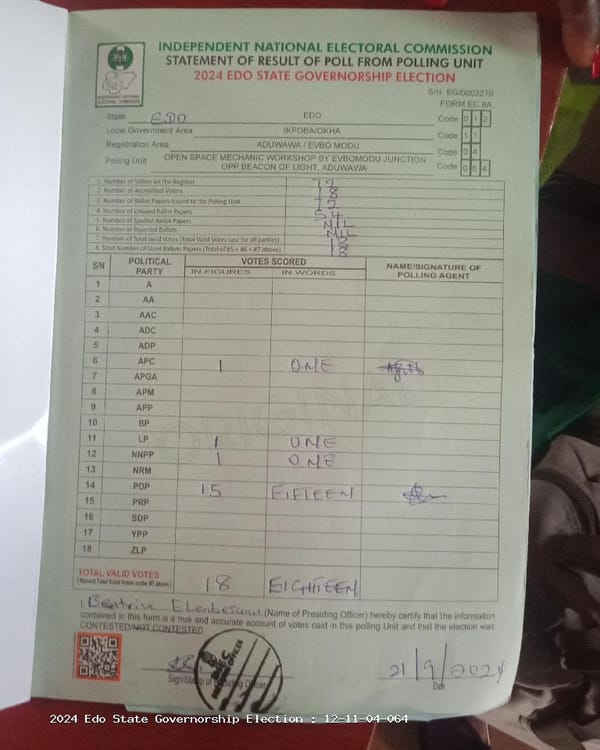 INDEPENDENT NATIONAL ELECTORAL COMMISSION
STATEMENT OF RESULT OF POLL FROM POLLING UNIT
2024 EDO STATE GOVERNORSHIP ELECTION
S/N: EG/0002270
FORM EC 8A
State EDO EDO Code 0 1 2
Local Government Area IKPOBA/OKHA Code 1 1
Registration Area ADUWAWA / EVBO MODU Code 0 4
Polling Unit OPEN SPACE MECHANIC WORKSHOP BY EVBOMODU JUNCTION OPP BEACON OF LIGHT, ADUWAWA Code 0 6 4
1. Number of Voters on the Register 72
2. Number of Accredited Voters 18
3. Number of Ballot Papers Issued to the Polling Unit 72
4. Number of Unused Ballot Papers 54
5. Number of Spoiled Ballot Papers NIL
6. Number of Rejected Ballots NIL
7. Number of Total Valid Votes (Total Valid Votes cast for all parties) 18
8. Total Number of Used Ballots Papers (Total of #5 + #6 + #7 above) 18
S/N POLITICAL PARTY VOTES SCORED NAME/SIGNATURE OF POLLING AGENT
IN FIGURES IN WORDS
1 A
2 AA
3 AAC
4 ADC
5 ADP
6 APC 1 ONE
7 APGA
8 APM
9 APP
10 BP
11 LP 1 ONE
12 NNPP 1 ONE
13 NRM
14 PDP 15 FIFTEEN
15 PRP
16 SDP
17 YPP
18 ZLP
TOTAL VALID VOTES 18 EIGHTEEN
(Record Total Valid Votes under #7 above)
I, Beatrice (Name of Presiding Officer) hereby certify that the information
contained in this form is a true and accurate account of votes cast in this polling Unit and that the election was
CONTESTED/NOT CONTESTED
21/9/2024
Sign/Stamp of Presiding Officer Date
2024 Edo State Governorship Election : 12-11-04-064